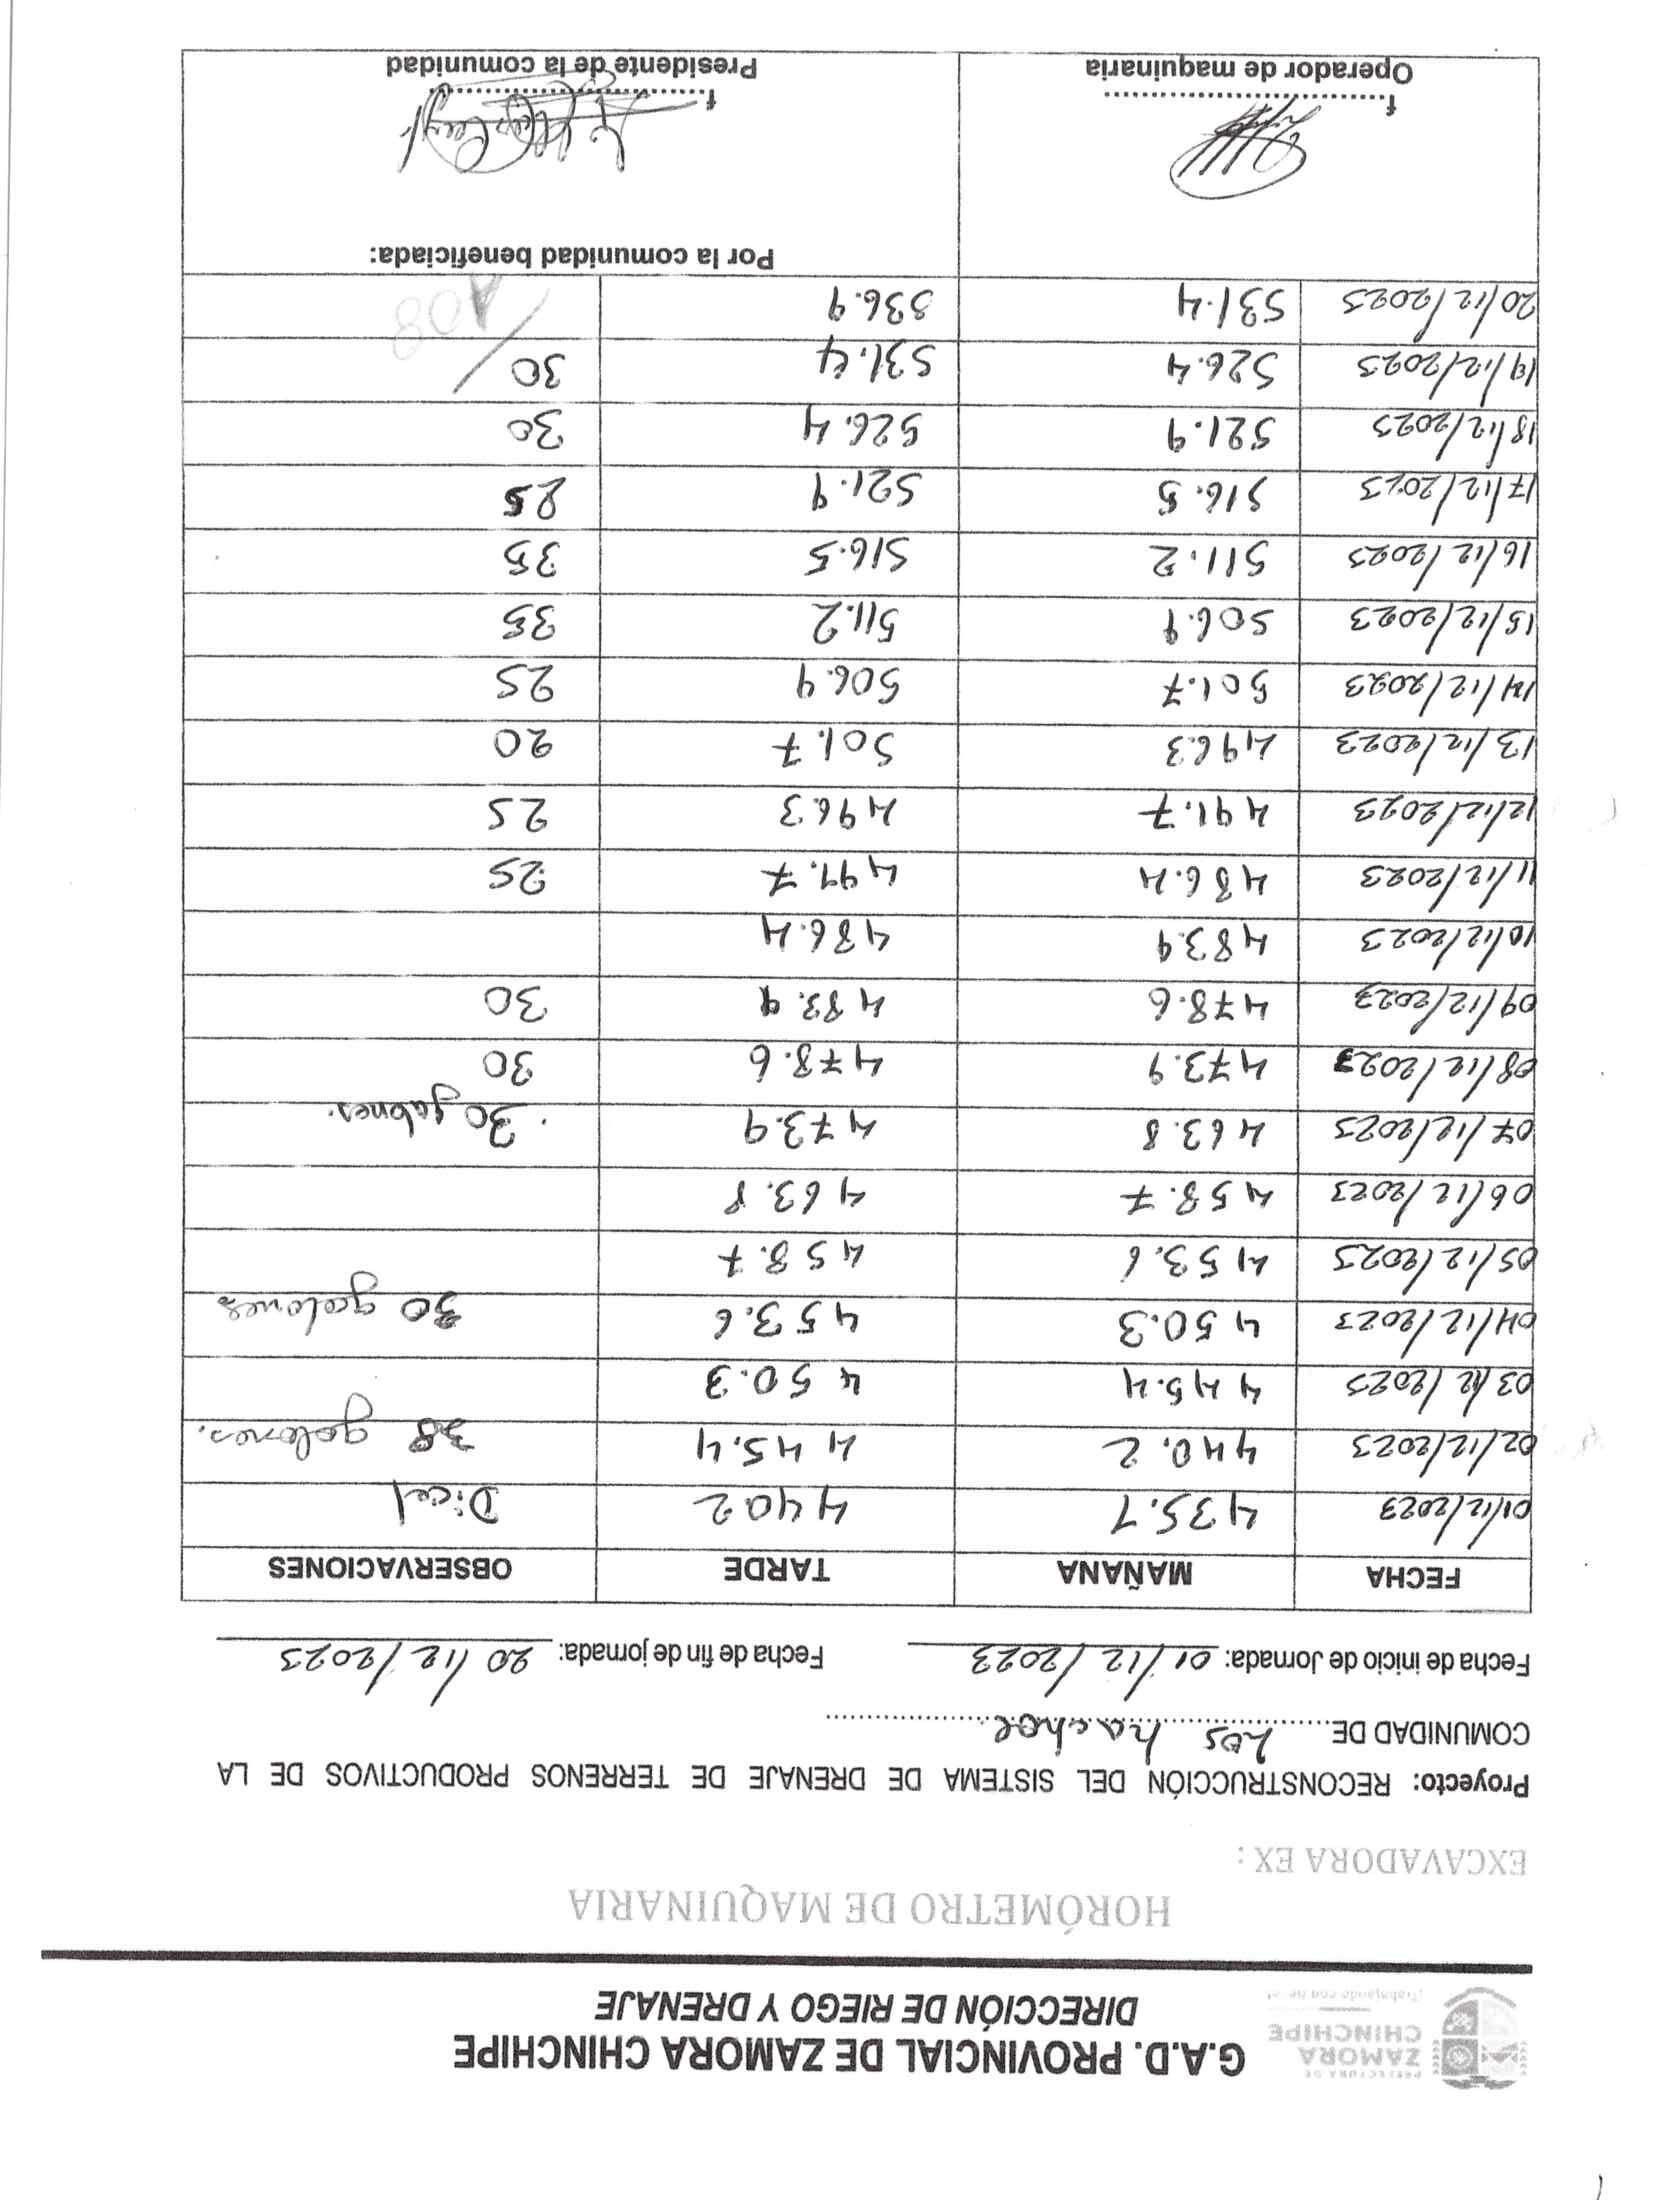 PREFECTURA DE
ZAMORA
CHINCHIPE
G.A.D. PROVINCIAL DE ZAMORA CHINCHIPE
DIRECCIÓN DE RIEGO Y DRENAJE
HORÓMETRO DE MAQUINARIA
EXCAVADORA EX :
Proyecto: RECONSTRUCCIÓN DEL SISTEMA DE DRENAJE DE TERRENOS PRODUCTIVOS DE LA
COMUNIDAD DE Los hachos
Fecha de inicio de Jornada: 01/12/2023 Fecha de fin de jornada: 20/12/2023
FECHA MAÑANA TARDE OBSERVACIONES
01/12/2023 435.9 440.2 Dicel
02/12/2023 440.2 445.4 38 galones.
03/12/2023 445.4 450.3
04/12/2023 450.3 453.6 30 galones
05/12/2023 453.6 458.7
06/12/2023 458.7 463.8
07/12/2023 463.8 473.9 30 galones.
08/12/2023 473.9 478.6 30
09/12/2023 478.6 483.9 30
10/12/2023 483.9 486.4
11/12/2023 486.4 491.7 25
12/12/2023 491.7 496.3 25
13/12/2023 496.3 501.7 20
14/12/2023 501.7 506.9 25
15/12/2023 506.9 511.2 35
16/12/2023 511.2 516.5 35
17/12/2023 516.5 521.9 25
18/12/2023 521.9 526.4 30
19/12/2023 526.4 531.4 30
20/12/2023 531.4 536.9
Por la comunidad beneficiada:
f. f.
Operador de maquinaria Presidente de la comunidad